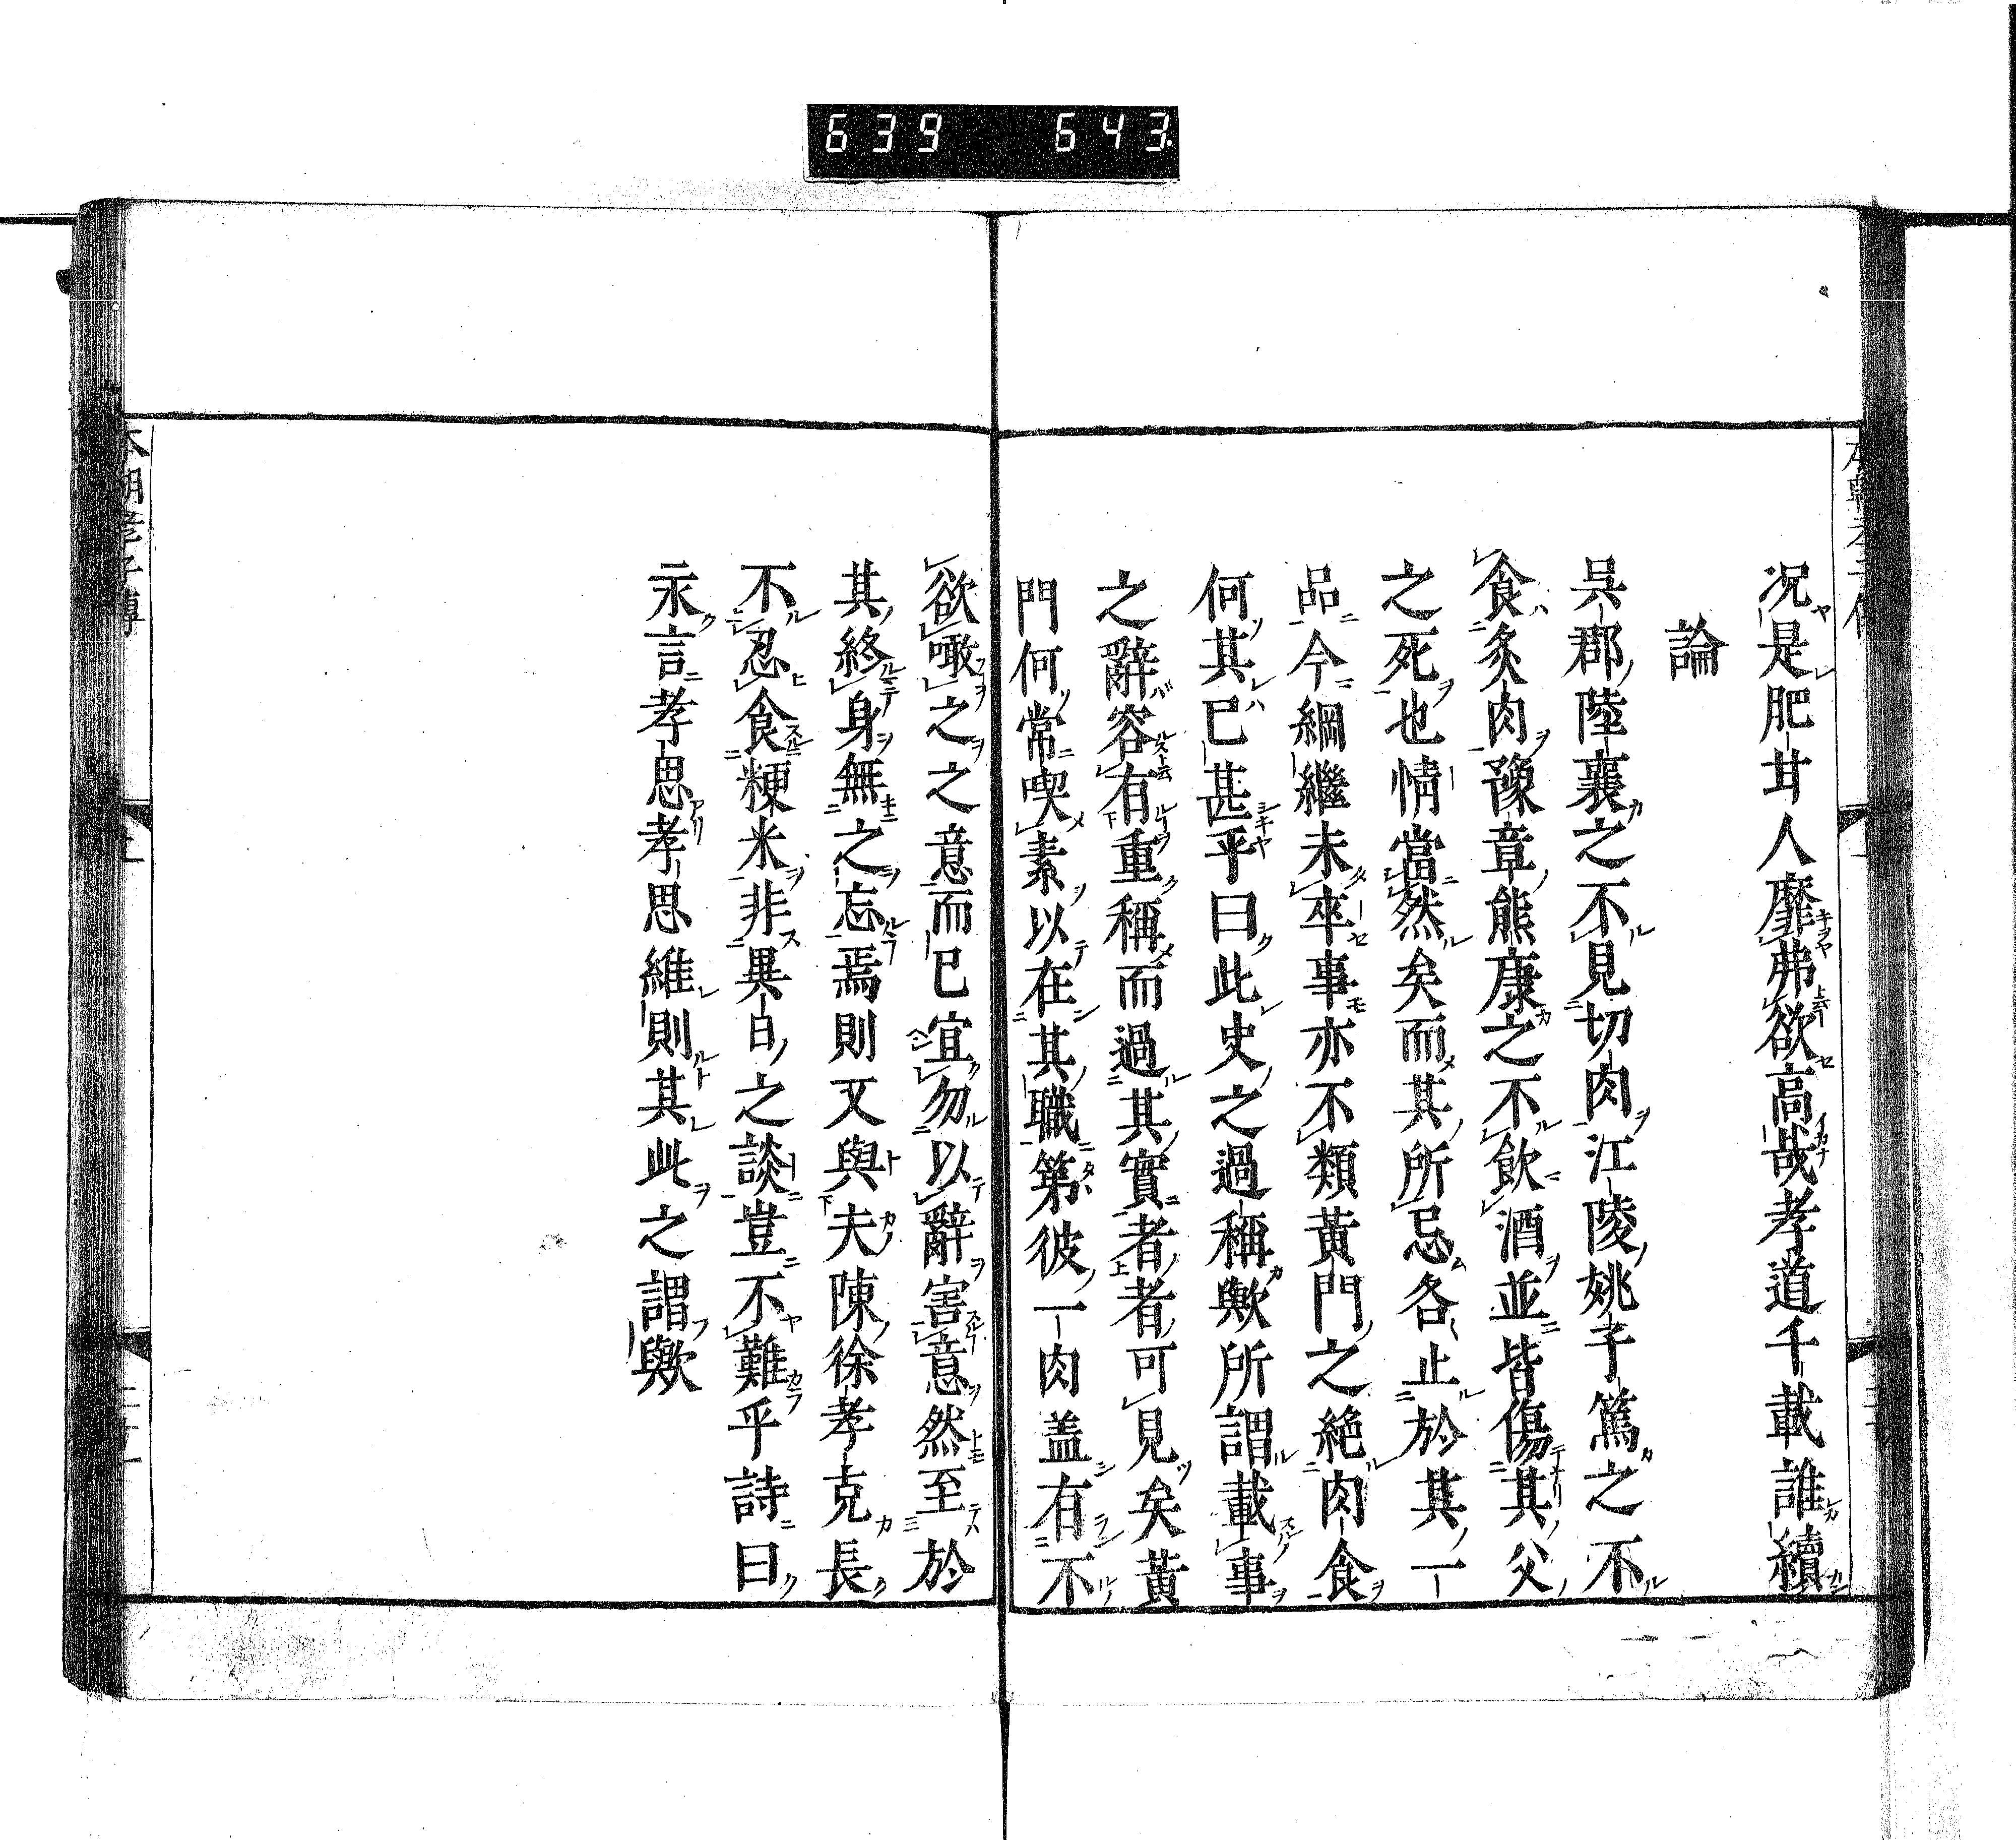 639 643
况是肥甘人靡弗欲高哉孝道千載誰續
論
呉郡陸襄之不見切肉江陵姚子篤之不
食炙肉豫章熊康之不飲酒並皆傷其父
之死也情當然矣而其所忌各止於其一
品今綱繼未卒事亦不類黃門之絶肉食
何其已甚乎曰此史之過稱歟所謂載事
之辭容有重稱而過其實者者可見矣黃
門何常喫素以在其職第彼一肉盖有不
欲噉之之意而已宜勿以辭害意然至於
其終身無之忘焉則又與夫陳徐孝克長
不忍食粳米非異日之談豈不難乎詩曰
永言孝思孝思維則其此之謂歟
本朝孝子傳